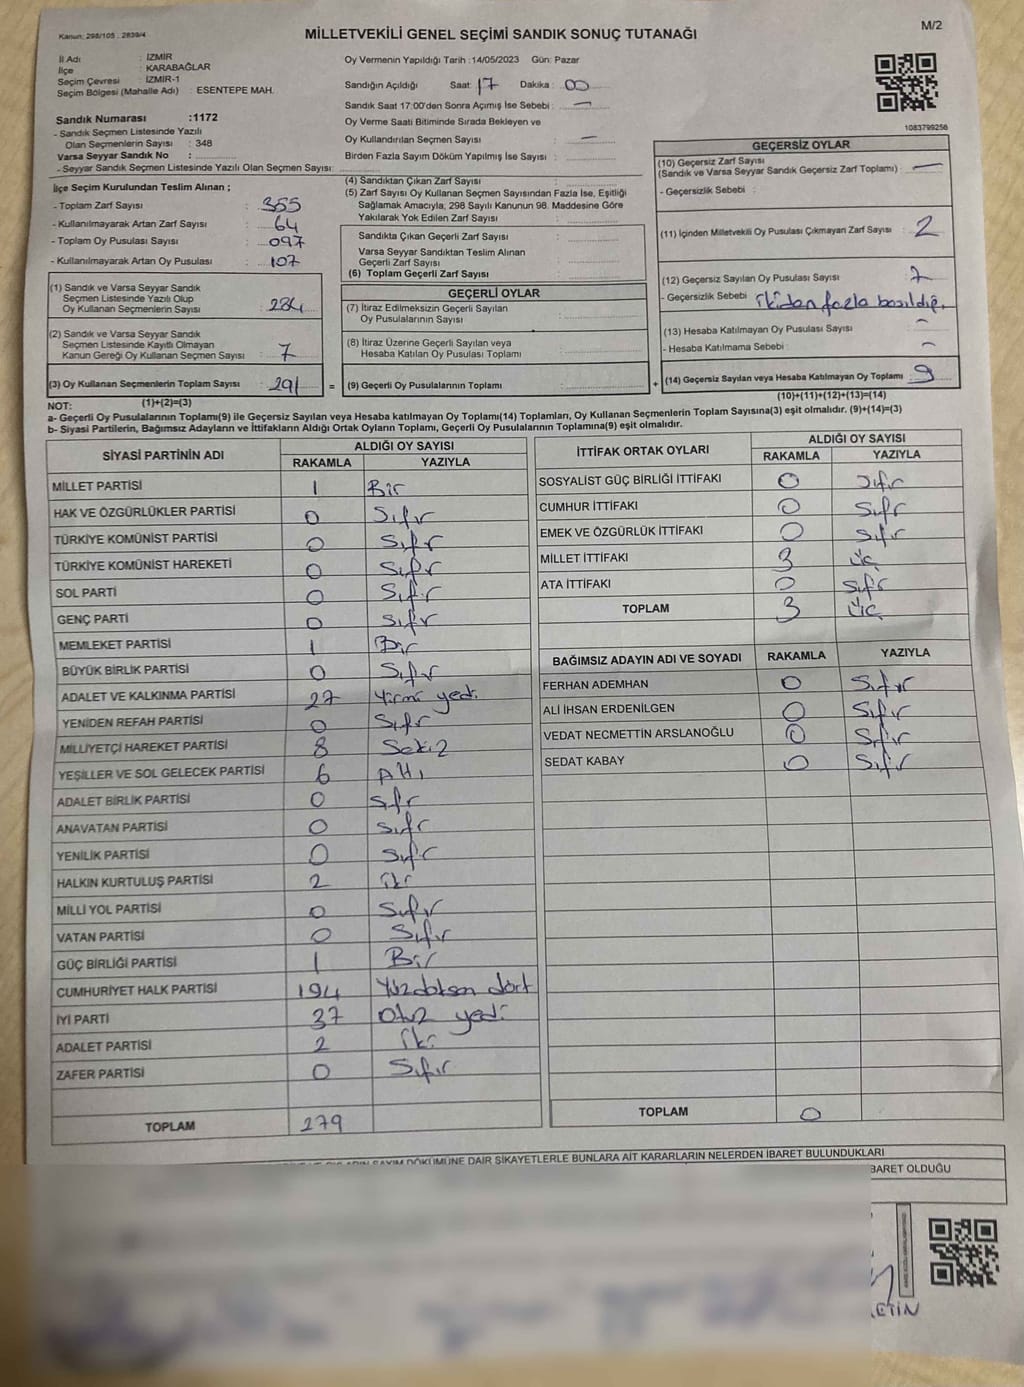 Kanun: 298/105 . 2839/4
MİLLETVEKİLİ GENEL SEÇİMİ SANDIK SONUÇ TUTANAĞI
M/2
İl Adı : İZMİR
İlçe : KARABAĞLAR
Seçim Çevresi : İZMİR-1
Seçim Bölgesi (Mahalle Adı) : ESENTEPE MAH.
Sandık Numarası :1172
- Sandık Seçmen Listesinde Yazılı
Olan Seçmenlerin Sayısı : 348
Varsa Seyyar Sandık No :
- Seyyar Sandık Seçmen Listesinde Yazılı Olan Seçmen Sayısı:
Oy Vermenin Yapıldığı Tarih :14/05/2023 Gün: Pazar
Sandığın Açıldığı Saat: 17 Dakika : 00
Sandık Saat 17:00'den Sonra Açımış İse Sebebi : —
Oy Verme Saati Bitiminde Sırada Bekleyen ve
Oy Kullandırılan Seçmen Sayısı : —
Birden Fazla Sayım Döküm Yapılmış İse Sayısı :
1083799256
İlçe Seçim Kurulundan Teslim Alınan ;
- Toplam Zarf Sayısı : 355
- Kullanılmayarak Artan Zarf Sayısı : 64
- Toplam Oy Pusulası Sayısı : 097
- Kullanılmayarak Artan Oy Pusulası : 107
(1) Sandık ve Varsa Seyyar Sandık
Seçmen Listesinde Yazılı Olup
Oy Kullanan Seçmenlerin Sayısı : 284
(2) Sandık ve Varsa Seyyar Sandık
Seçmen Listesinde Kayıtlı Olmayan
Kanun Gereği Oy Kullanan Seçmen Sayısı : 7
(3) Oy Kullanan Seçmenlerin Toplam Sayısı : 291 =
(1)+(2)=(3)
(4) Sandıktan Çıkan Zarf Sayısı :
(5) Zarf Sayısı Oy Kullanan Seçmen Sayısından Fazla İse, Eşitliği
Sağlamak Amacıyla, 298 Sayılı Kanunun 98. Maddesine Göre
Yakılarak Yok Edilen Zarf Sayısı :
Sandıkta Çıkan Geçerli Zarf Sayısı :
Varsa Seyyar Sandıktan Teslim Alınan
Geçerli Zarf Sayısı :
(6) Toplam Geçerli Zarf Sayısı :
GEÇERLİ OYLAR
(7) İtiraz Edilmeksizin Geçerli Sayılan
Oy Pusulalarının Sayısı :
(8) İtiraz Üzerine Geçerli Sayılan veya
Hesaba Katılan Oy Pusulası Toplamı :
(9) Geçerli Oy Pusulalarının Toplamı : +
GEÇERSİZ OYLAR
(10) Geçersiz Zarf Sayısı
(Sandık ve Varsa Seyyar Sandık Geçersiz Zarf Toplamı) : —
- Geçersizlik Sebebi :
(11) İçinden Milletvekili Oy Pusulası Çıkmayan Zarf Sayısı : 2
(12) Geçersiz Sayılan Oy Pusulası Sayısı : 7
- Geçersizlik Sebebi : ikiden fazla basıldığı.
(13) Hesaba Katılmayan Oy Pusulası Sayısı : -
- Hesaba Katılmama Sebebi : -
(14) Geçersiz Sayılan veya Hesaba Katılmayan Oy Toplamı : 9
(10)+(11)+(12)+(13)=(14)
NOT:
a- Geçerli Oy Pusulalarının Toplamı(9) ile Geçersiz Sayılan veya Hesaba katılmayan Oy Toplamı(14) Toplamları, Oy Kullanan Seçmenlerin Toplam Sayısına(3) eşit olmalıdır. (9)+(14)=(3)
b- Siyasi Partilerin, Bağımsız Adayların ve İttifakların Aldığı Ortak Oyların Toplamı, Geçerli Oy Pusulalarının Toplamına(9) eşit olmalıdır.
SİYASİ PARTİNİN ADI ALDIĞI OY SAYISI
RAKAMLA YAZIYLA
MİLLET PARTİSİ 1 Bir
HAK VE ÖZGÜRLÜKLER PARTİSİ 0 Sıfır
TÜRKİYE KOMÜNİST PARTİSİ 0 Sıfır
TÜRKİYE KOMÜNİST HAREKETİ 0 Sıfır
SOL PARTİ 0 Sıfır
GENÇ PARTİ 0 Sıfır
MEMLEKET PARTİSİ 1 Bir
BÜYÜK BİRLİK PARTİSİ 0 Sıfır
ADALET VE KALKINMA PARTİSİ 27 Yirmi yedi
YENİDEN REFAH PARTİSİ 0 Sıfır
MİLLİYETÇİ HAREKET PARTİSİ 8 Sekiz
YEŞİLLER VE SOL GELECEK PARTİSİ 6 Altı
ADALET BİRLİK PARTİSİ 0 Sıfır
ANAVATAN PARTİSİ 0 Sıfır
YENİLİK PARTİSİ 0 Sıfır
HALKIN KURTULUŞ PARTİSİ 2 iki
MİLLİ YOL PARTİSİ 0 Sıfır
VATAN PARTİSİ 0 Sıfır
GÜÇ BİRLİĞİ PARTİSİ 1 Bir
CUMHURİYET HALK PARTİSİ 194 Yüzdoksan dört
İYİ PARTİ 37 Otuz yedi
ADALET PARTİSİ 2 İki
ZAFER PARTİSİ 0 Sıfır
TOPLAM 279
İTTİFAK ORTAK OYLARI ALDIĞI OY SAYISI
RAKAMLA YAZIYLA
SOSYALİST GÜÇ BİRLİĞİ İTTİFAKI 0 Sıfır
CUMHUR İTTİFAKI 0 Sıfır
EMEK VE ÖZGÜRLÜK İTTİFAKI 0 Sıfır
MİLLET İTTİFAKI 3 Üç
ATA İTTİFAKI 0 Sıfır
TOPLAM 3 Üç
BAĞIMSIZ ADAYIN ADI VE SOYADI RAKAMLA YAZIYLA
FERHAN ADEMHAN 0 Sıfır
ALİ İHSAN ERDENİLGEN 0 Sıfır
VEDAT NECMETTİN ARSLANOĞLU 0 Sıfır
SEDAT KABAY 0 Sıfır
TOPLAM 0
SAYIM DÖKÜMÜNE DAİR ŞİKAYETLERLE BUNLARA AİT KARARLARIN NELERDEN İBARET BULUNDUKLARI
BARET OLDUĞU
ETİN